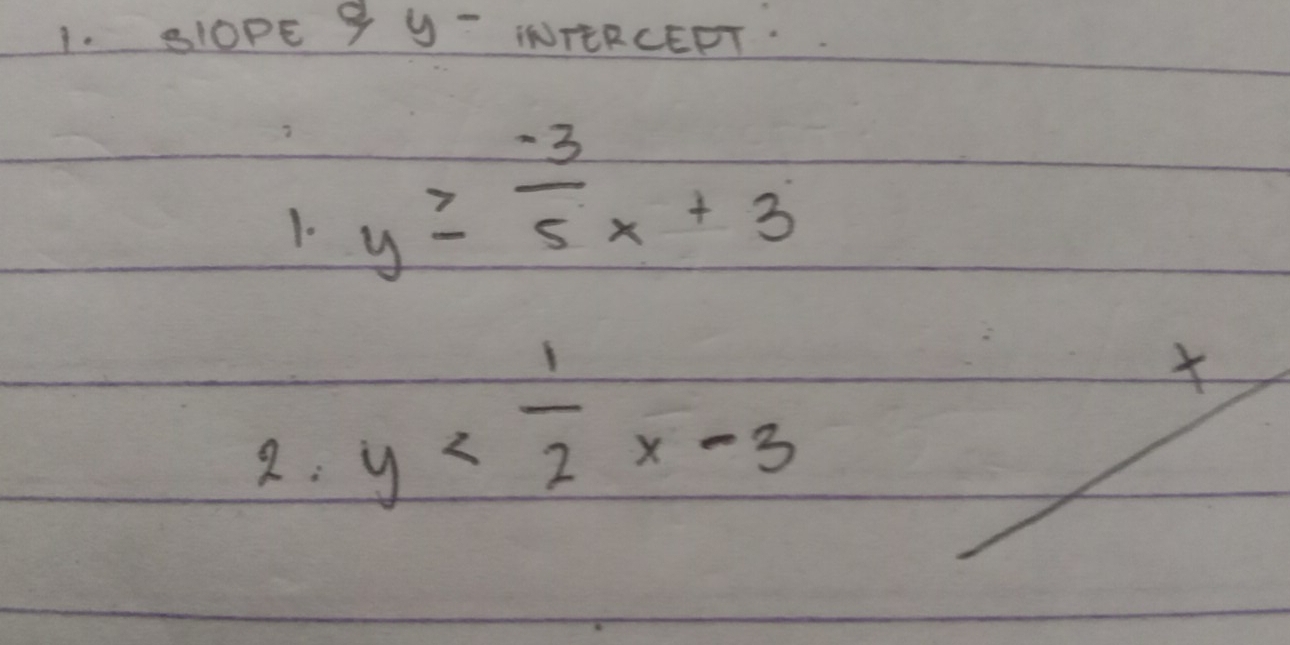 1. SLOPE & y - INTERCEPT.
1. y ≥ -3/5 x + 3
2. y < 1/2 x - 3
+